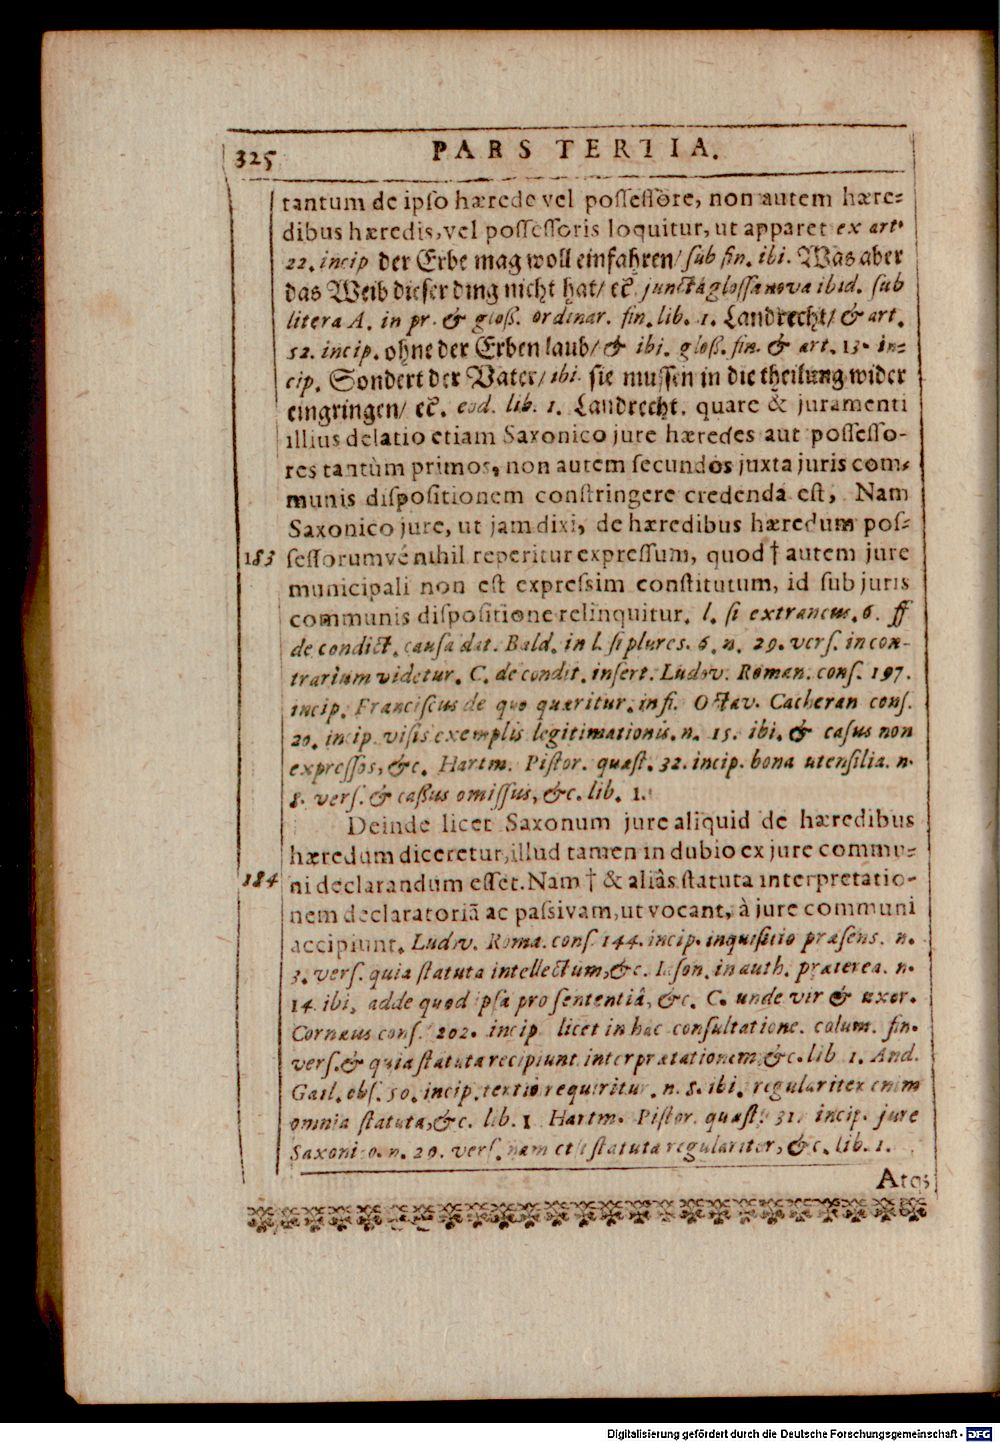 325 PARS TERTIA.
tantum de ipso hærede vel possessore, non autem hære-
dibus hæredis, vel possessoris loquitur, ut apparet ex art.
22. incip der Erbe mag woll einfahren/ sub fin. ibi. Was aber
das Weib dieser ding nicht hat/ ec. junctâ glossa nova ibid. sub
litera A. in pr. & gloß. ordinar. fin. lib. 1. Landrecht/ & art.
52. incip. ohne der Erben laub/ & ibi. gloß. fin. & art. 13. in-
cip. Sondert der Vater/ ibi. sie mussen in die theilung wider
eingringen/ ec. eod. lib. 1. Landrecht. quare & juramenti
illius delatio etiam Saxonico jure hæredes aut possesso-
res tantùm primos, non autem secundos juxta juris com-
munis dispositionem constringere credenda est, Nam
Saxonico jure, ut jam dixi, de hæredibus hæredum pos-
183 sessorumvé nihil reperitur expressum, quod † autem jure
municipali non est expressim constitutum, id sub juris
communis dispositione relinquitur. l. si extraneus. 6. ff
de condict. causa dat. Bald. in l. si plures. 6. n. 29. vers. in con-
trarium videtur. C. de condit. insert. Ludov. Roman. cons. 197.
incip. Franciscus de quo quæritur. in fi. Octav. Cacheran cons.
20. incip. visis exemplis legitimationis. n. 15. ibi. & casus non
expressos, &c. Hartm. Pistor. quæst. 32. incip. bona utensilia. n.
8. vers. & caßus omissus, &c. lib. 1.
Deinde licet Saxonum jure aliquid de hæredibus
hæredum diceretur, illud tamen in dubio ex jure commu-
184 ni declarandum esset. Nam † & aliâs statuta interpretatio-
nem declaratoriã ac passivam, ut vocant, à jure communi
accipiunt. Ludov. Roma. cons. 144. incip. inquisitio præsens. n.
3. vers. quia statuta intellectum, &c. Iason. in auth. præterea. n.
14. ibi, adde quod ipsa pro sententiâ, &c. C. unde vir & uxor.
Cornæus cons. 202. incip licet in hac consultatione. colum. fin.
vers. & quia statuta recipiunt interprætationem, &c. lib 1. And.
Gail. obs. 50. incip. tertio requiritur. n. 8. ibi. regulariter enim
omnia statuta, &c. lib. 1 Hartm. Pistor. quæst. 31. incip. jure
Saxonico. n. 29. vers. nam etsi statuta regulariter, &c. lib. 1.
Atqs
Digitalisierung gefördert durch die Deutsche Forschungsgemeinschaft - DFG